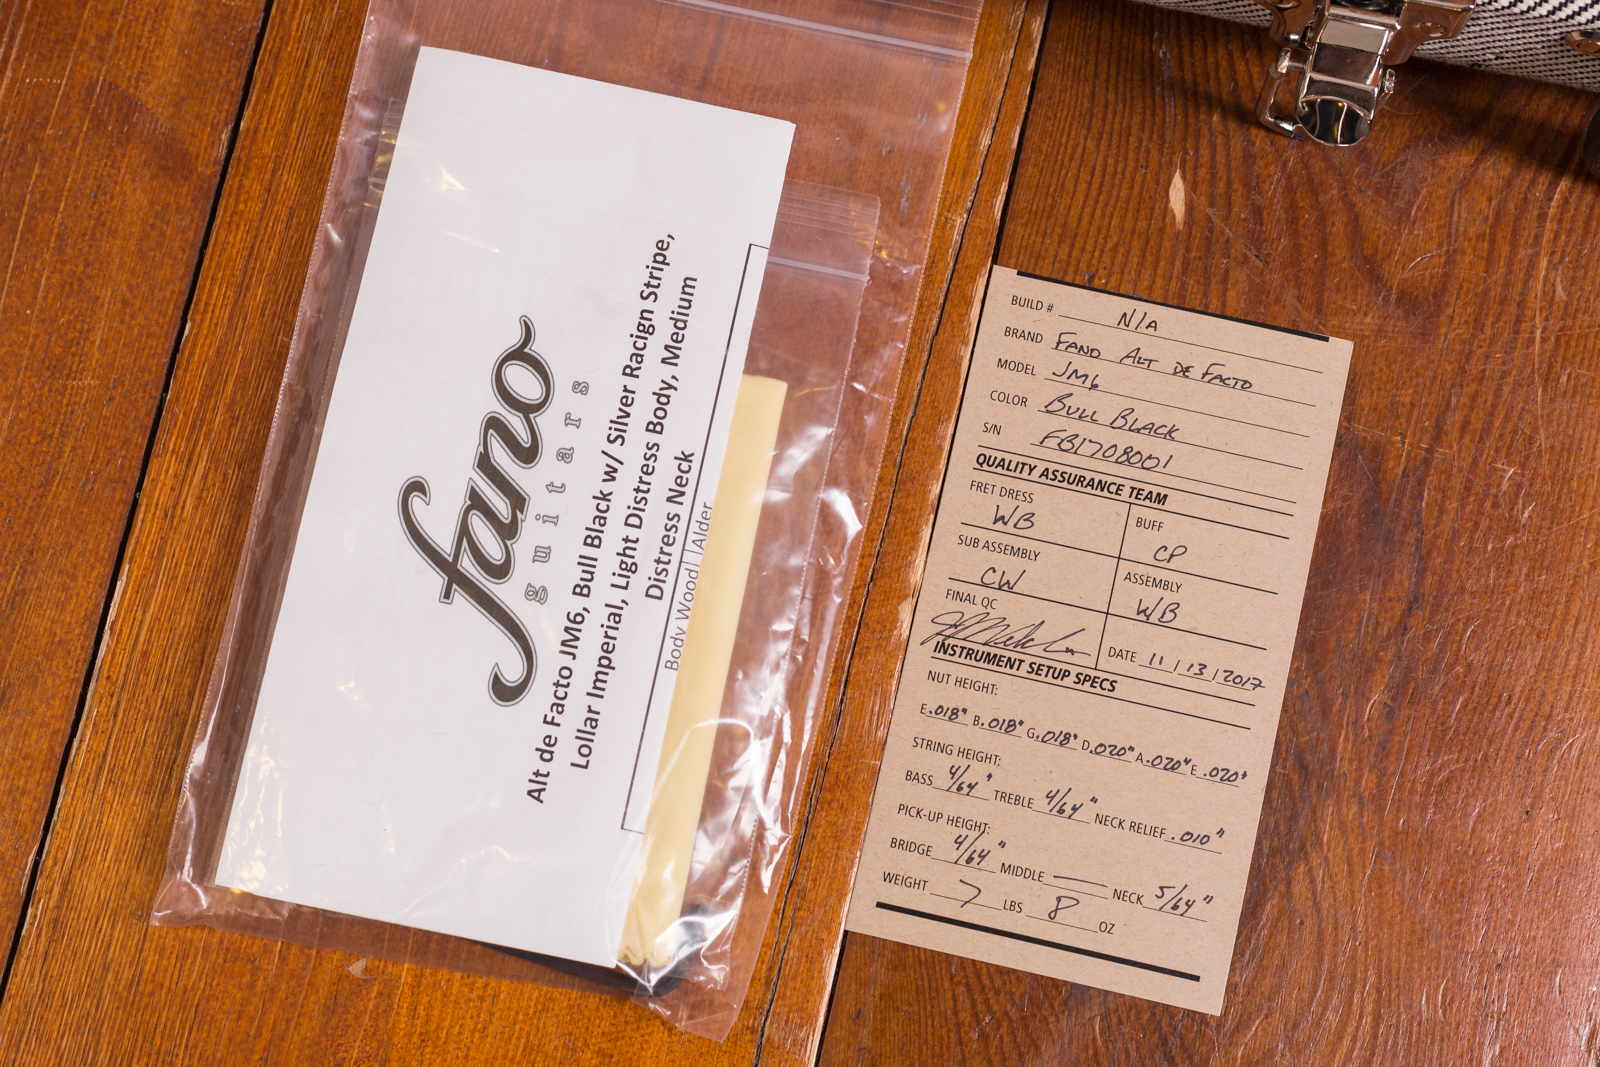 fano
guitars
Alt de Facto JM6, Bull Black w/ Silver Racign Stripe,
Lollar Imperial, Light Distress Body, Medium
Distress Neck
Body Wood Alder
BUILD # N/A
BRAND FANO ALT DE FACTO
MODEL JM6
COLOR BULL BLACK
S/N FB1708001
QUALITY ASSURANCE TEAM
FRET DRESS WB
BUFF CP
SUB ASSEMBLY CW
ASSEMBLY WB
FINAL QC
DATE 11/13/2017
INSTRUMENT SETUP SPECS
NUT HEIGHT:
E .018" B .018" G .018" D .020" A .020" E .020"
STRING HEIGHT:
BASS 4/64" TREBLE 4/64" NECK RELIEF .010"
PICK-UP HEIGHT:
BRIDGE 4/64" MIDDLE — NECK 5/64"
WEIGHT 7 LBS 8 OZ